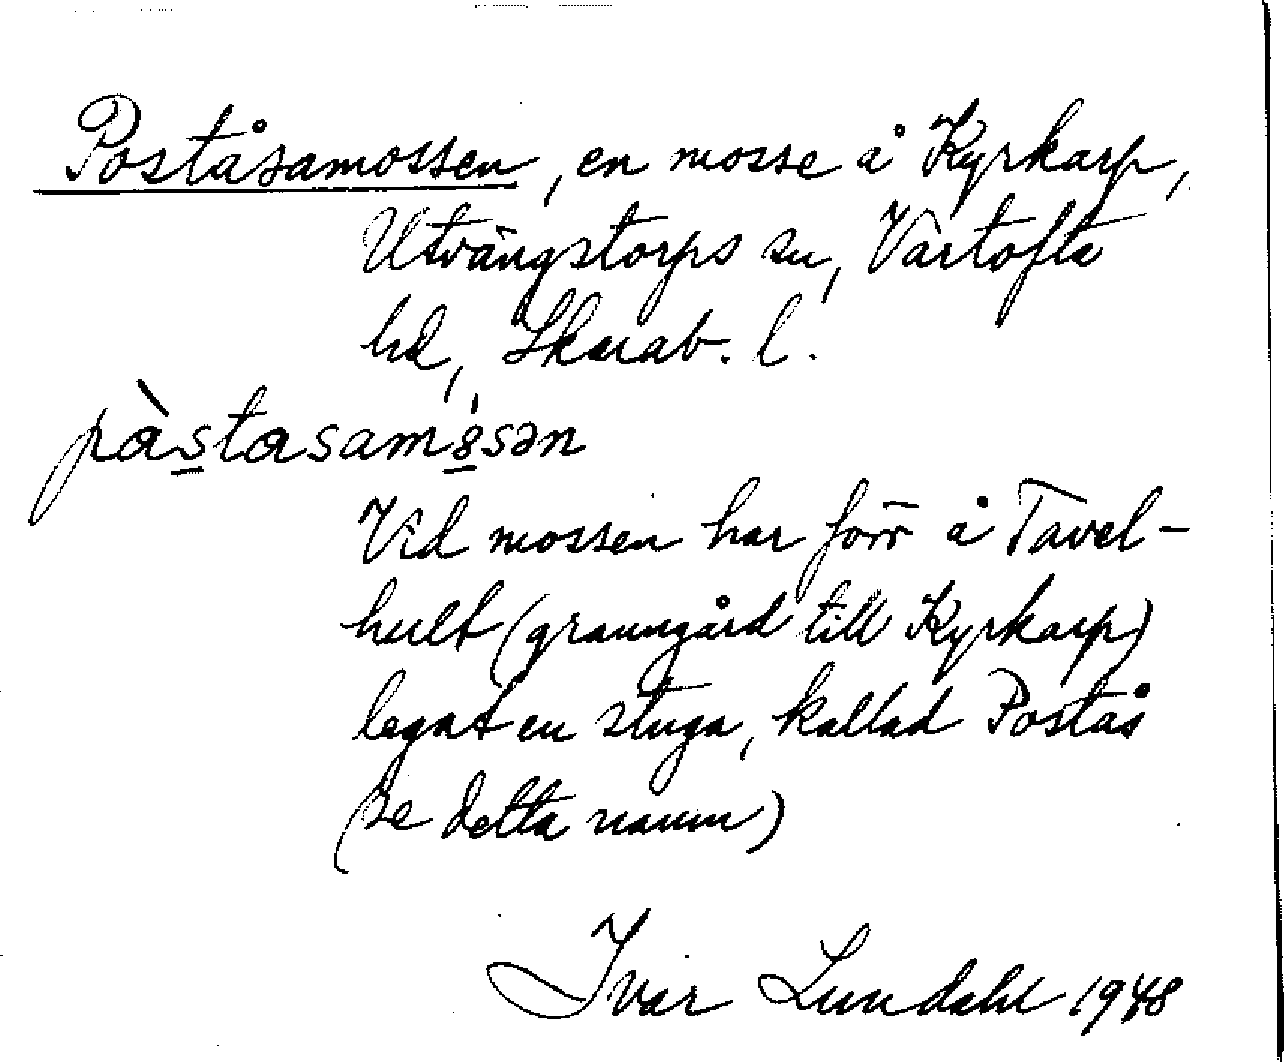 Poståsamossen, en mosse å Kyrkarp,
Utvängstorps sn, Vartofta
hd, Skarab. l.
Vid mossen har förr å Tavel-
hult (granngård till Kyrkarp)
legat en stuga, kallad Postås
(se detta namn)
Ivar Lundahl 1948